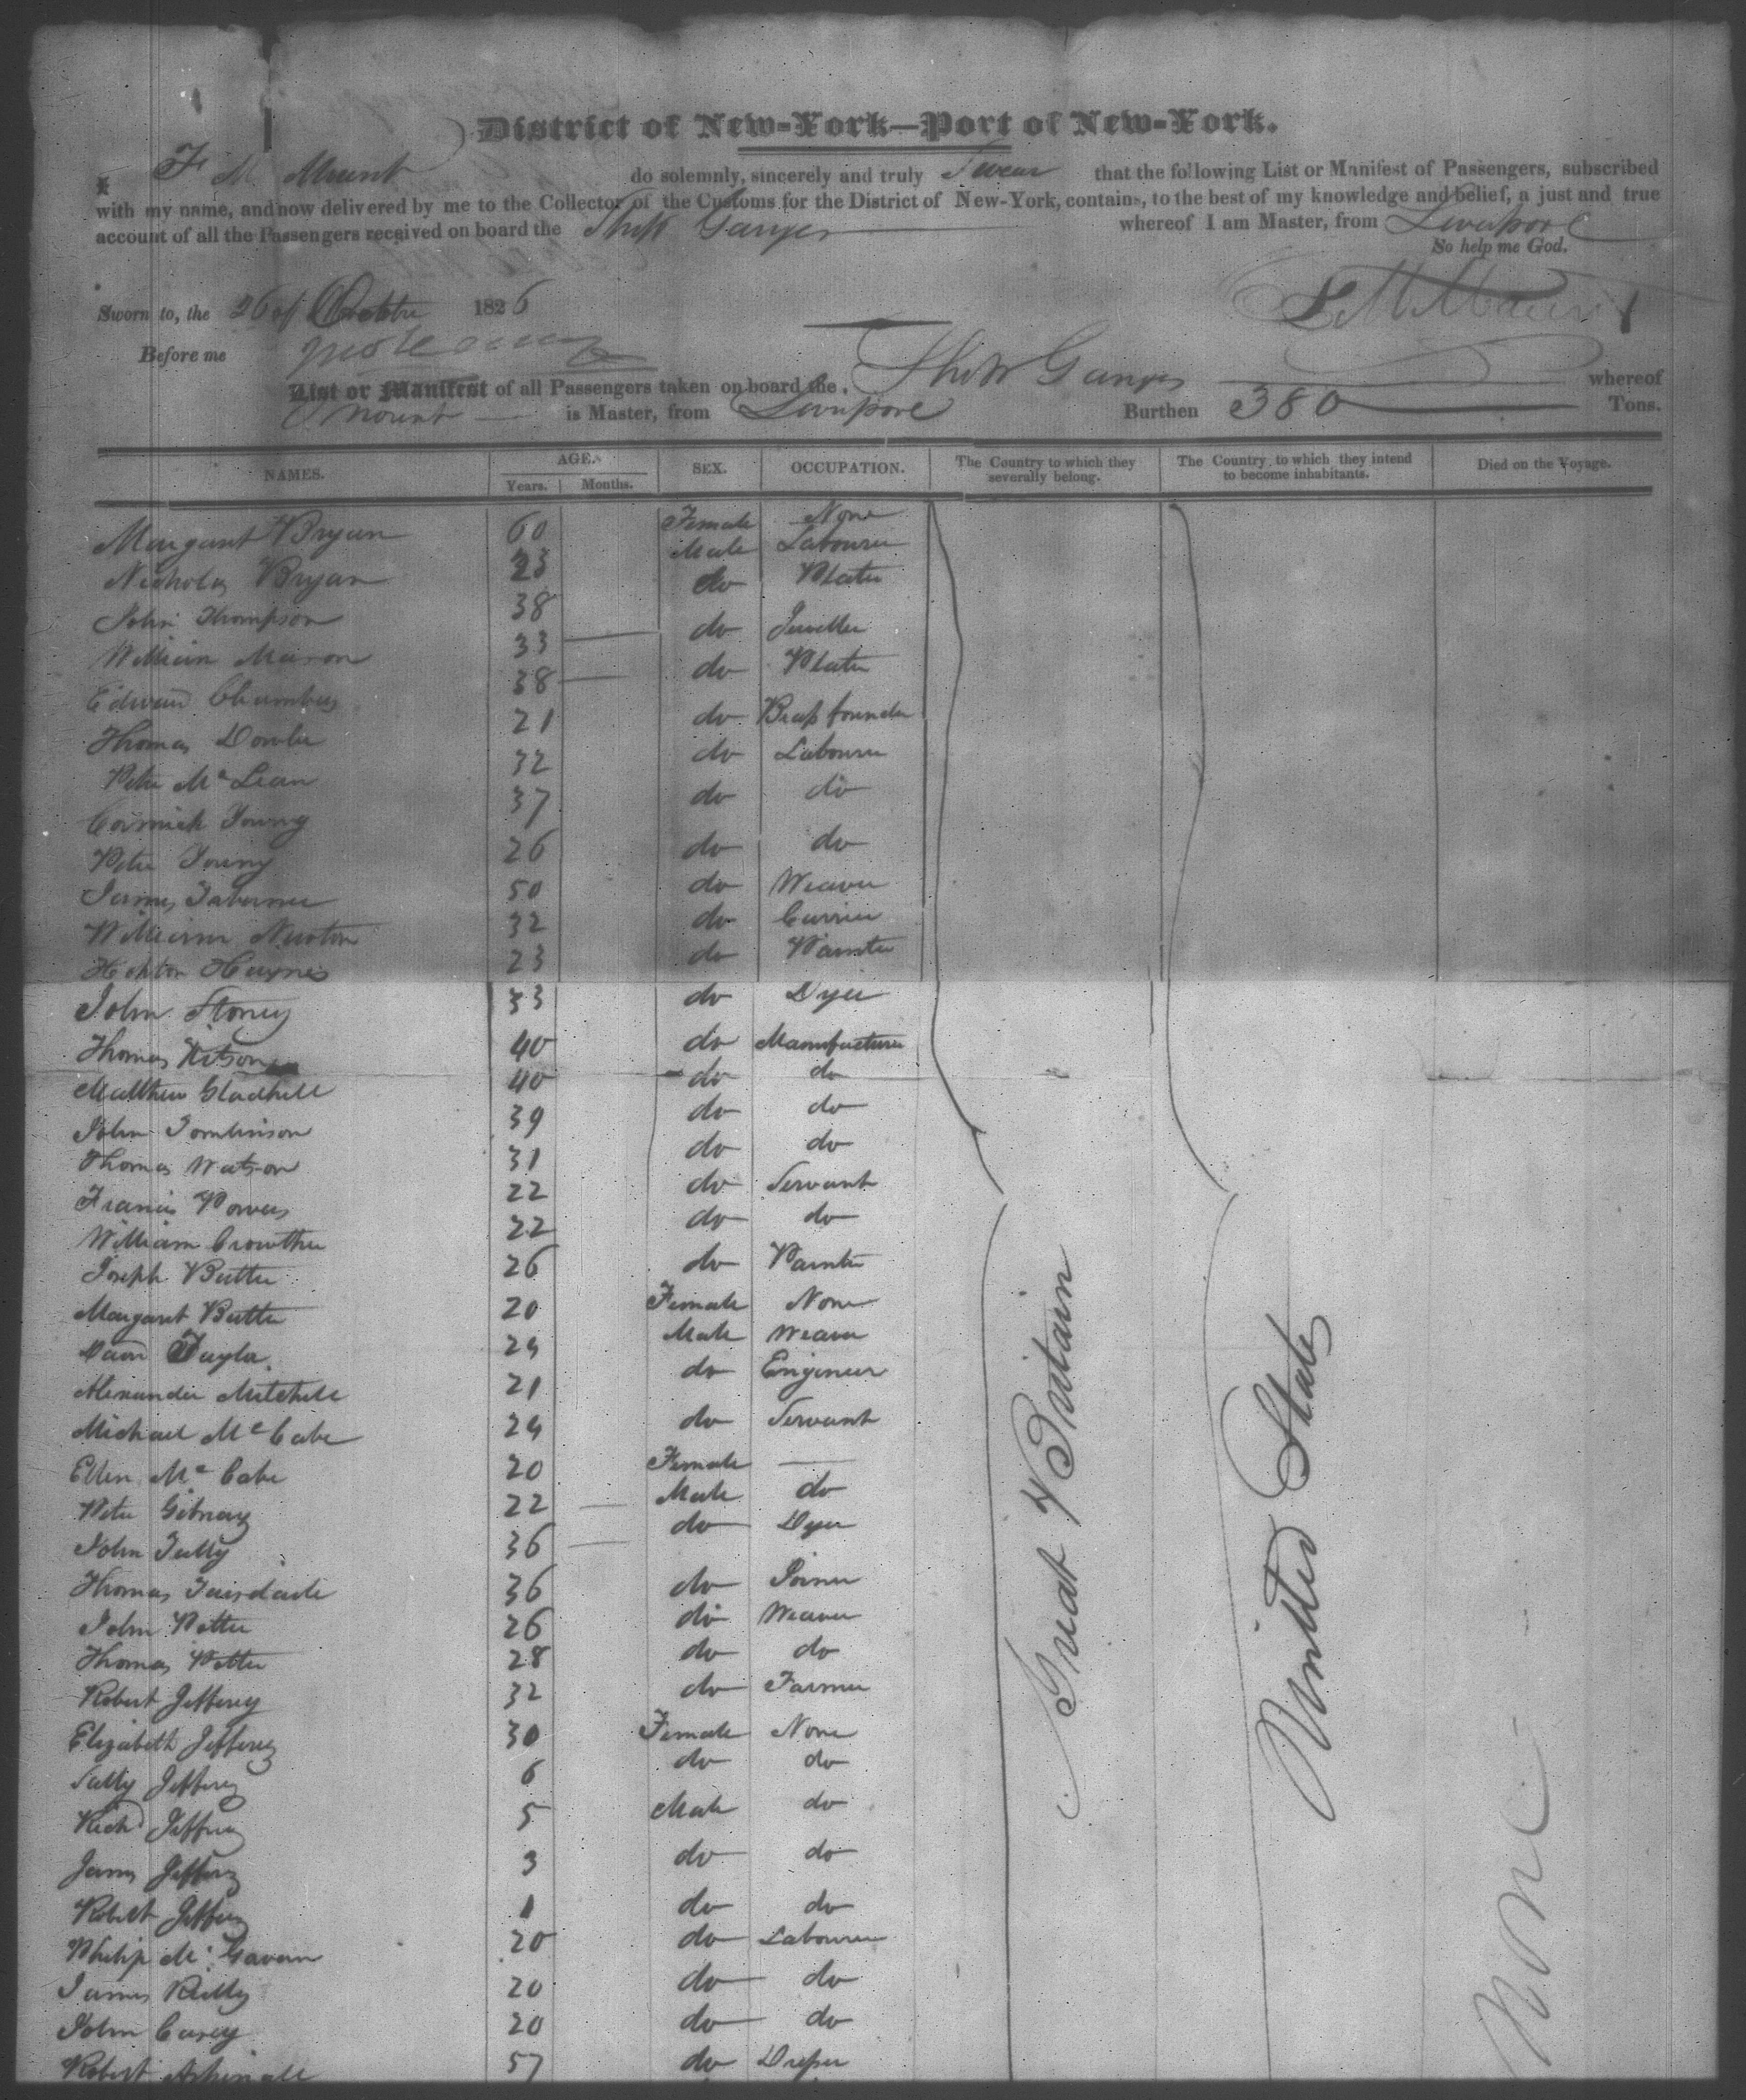 District of New-York—Port of New-York.
I, M. Mount do solemnly, sincerely and truly Swear that the following List or Manifest of Passengers, subscribed
with my name, and now delivered by me to the Collector of the Customs for the District of New-York, contains, to the best of my knowledge and belief, a just and true
account of all the Passengers received on board the Ship Ganges whereof I am Master, from Liverpool
So help me God.
Sworn to, the 26 of 1826
Before me
List or Manifest of all Passengers taken on board the Ship Ganges whereof
Mount is Master, from Liverpool Burthen 380 Tons.
NAMES. AGE. Years. Months. SEX. OCCUPATION. The Country to which they severally belong. The Country to which they intend to become inhabitants. Died on the Voyage.
Margaret Bryan 60 Female None
Nicholas Bryan 23 Male Labourer
John Thompson 38 do Plater
William Mason 33 do Jeweller
Edward Chambers 38 do Plater
Thomas Dowler 21 do Brass founder
Peter McLean 32 do Labourer
Cormick Young 37 do do
Peter Young 26 do do
James Taberner 50 do Weaver
William Newton 32 do Currier
Haynes 23 do Painter
John Storey 33 do Dyer
Thomas Kitson 40 do Manufacturer
Matthew Gladhill 40 do do
John Tomlinson 39 do do
Thomas Watson 31 do do
Francis Powers 22 do Servant
William Crowther 22 do do
Joseph Butter 26 do Painter
Margaret Butter 20 Female None
David Taylor 24 Male Weaver
Alexander Mitchell 21 do Engineer
Michael McCabe 24 do Servant
Ellen McCabe 20 Female —
Peter Gibney 22 Male do
John Tully 36 do Dyer
Thomas 36 do Joiner
John Potter 26 do Weaver
Thomas Potter 28 do do
Robert Jefferey 32 do Farmer
Elizabeth Jefferey 30 Female None
Sally Jefferey 6 do do
Richd Jefferey 5 Male do
James Jefferey 3 do do
Robert Jefferey 1 do do
Philip McGavern 20 do Labourer
James Reilly 20 do do
John Casey 20 do do
Robert Aspinall 57 do Draper
Great Britain
United States
None